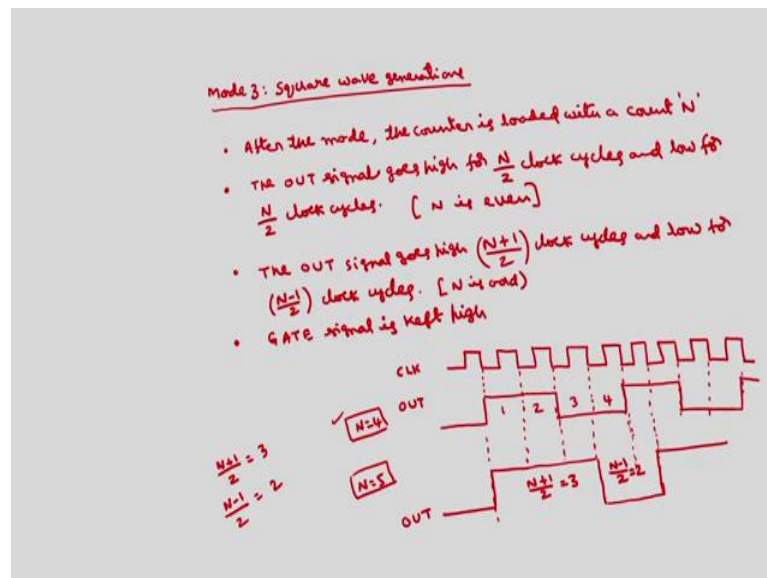 Mode 3: Square wave generations
• After the mode, the counter is loaded with a count 'N'
• The OUT signal goes high for N/2 clock cycles and low for
N/2 clock cycles. [N is even]
• The OUT signal goes high (N+1/2) clock cycles and low for
(N-1/2) clock cycles. [N is odd)
• GATE signal is kept high
CLK
OUT 1 2 3 4
✓ N=4
N+1/2 = 3
N-1/2 = 2
N=5
N+1/2 = 3 N-1/2 = 2
OUT